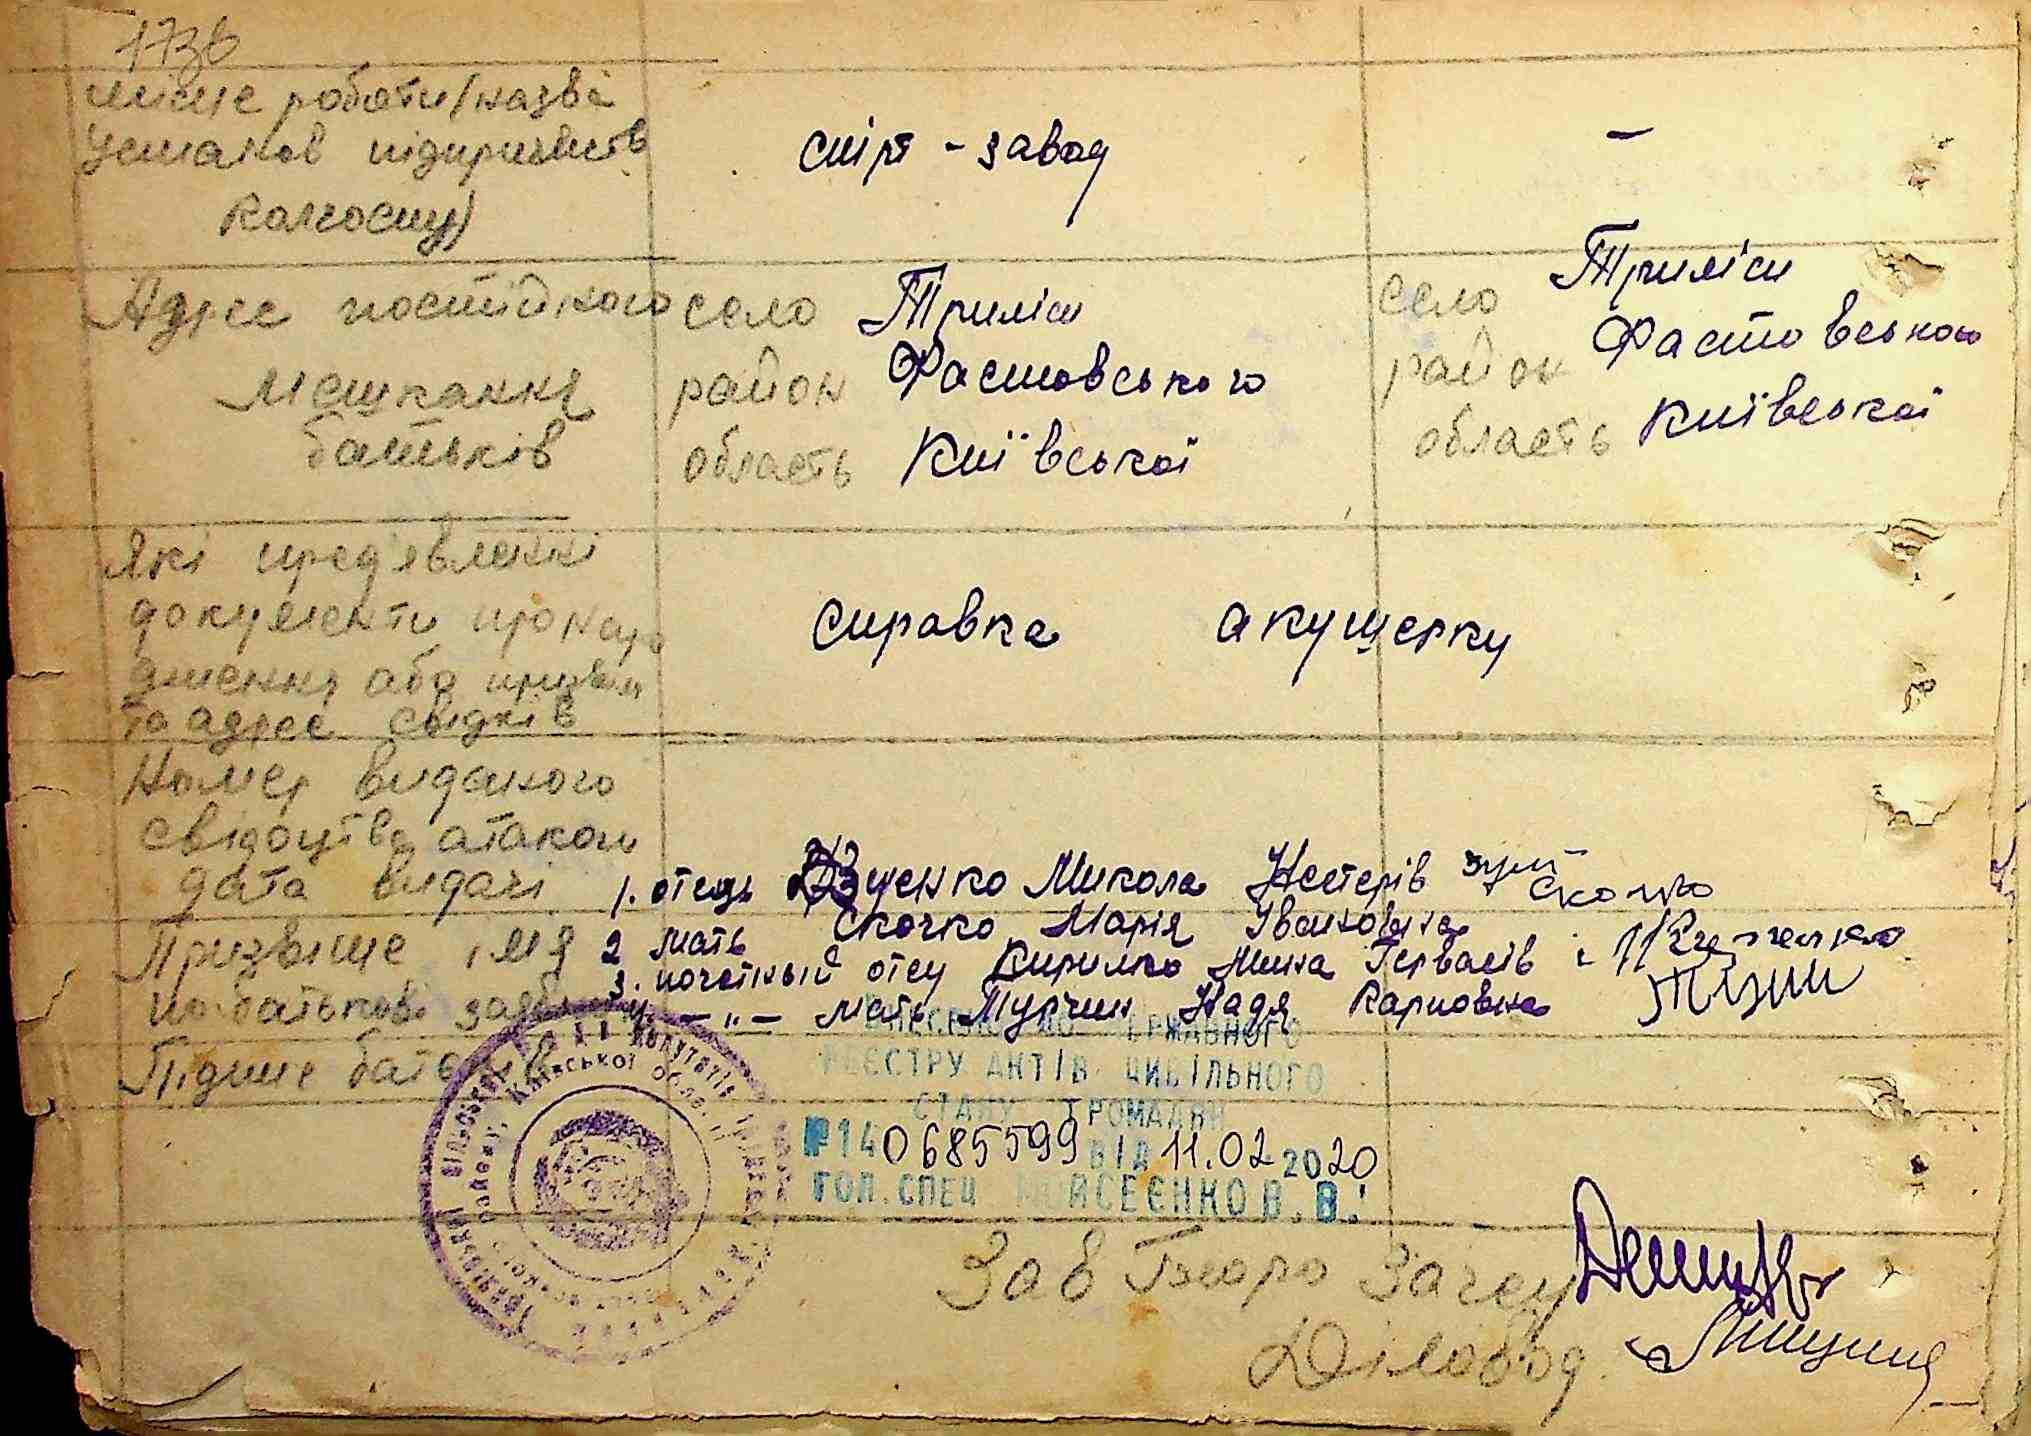 173б
місце роботи/назва
установ підприємств
колгоспу)
спірт - завод
-
Адрес постійного
мешкання
батьків
село Триліси
район Фастовського
область Київської
село Триліси
район Фастовського
область Київської
Які предʼявленні
документи про наро
дження або призвищ
та адрес свідків
справка акушерку
Номер виданого
свідоцтва а також
дата видачі
1. отець щенко Микола Нестерів
Призвище імя
по батькові
2 мать Скочко Марія Івановна
3. почетный отец Кирилко Мина Гервасів
4. - " - мать Турчин Надя Карповна
Підпис батьків
ДЕРЖАВНОГО
РЕЄСТРУ АКТІВ ЦИВІЛЬНОГО
СТАНУ ГРОМАДЯН
№140685599 ВІД 11.02 2020
ГОЛ. СПЕЦ МОЙСЕЄНКО В. В.
Зав Бюро Загсу
Діловод